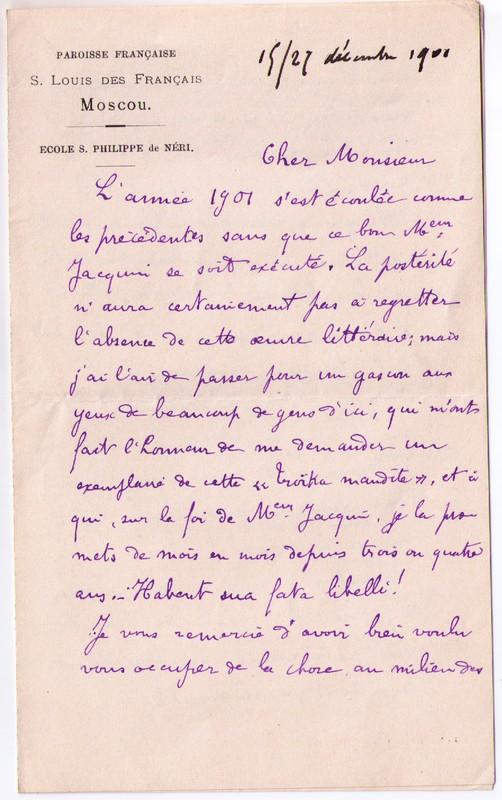 PAROISSE FRANÇAISE
S. LOUIS DES FRANÇAIS
Moscou.
ECOLE S. PHILIPPE de NÉRI.
15/27 décembre 1901
Cher Monsieur
L'année 1901 s'est écoulée comme
les précédentes sans que ce bon Meur
Jacquin se soit exécuté. La postérité
n'aura certainement pas à regretter
l'absence de cette œuvre littéraire; mais
j'ai l'air de passer pour un gascon aux
yeux de beaucoup de gens d'ici, qui m'ont
fait l'honneur de me demander un
exemplaire de cette « troïka maudite », et à
qui, sur la foi de Meur Jacquin, je la pro
mets de mois en mois depuis trois ou quatre
ans. – Habent sua fata libelli!
Je vous remercie d'avoir bien voulu
vous occuper de la chose au milieu des